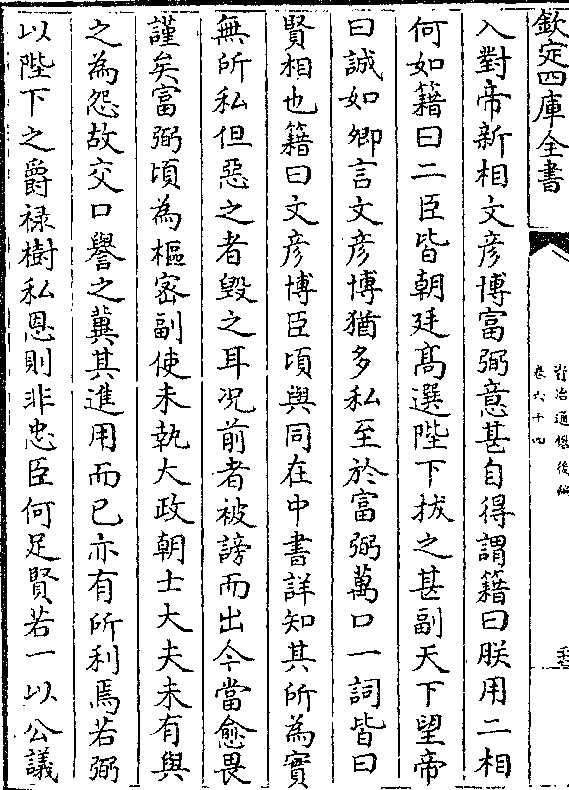 欽定四庫全書
資治通鑑後編
卷六十四
入對帝新相文彦博富弼意甚自得謂籍曰朕用二相
何如籍曰二臣皆朝廷髙選陛下拔之甚副天下望帝
曰誠如卿言文彦博猶多私至於富弼萬口一詞皆曰
賢相也籍曰文彦博臣頃與同在中書詳知其所為實
無所私但惡之者毁之耳况前者被謗而出今當愈畏
謹矣富弼頃為樞宻副使未執大政朝士大夫未有與
之為怨故交口譽之冀其進用而已亦有所利焉若弼
以陛下之爵禄樹私恩則非忠臣何足賢若一以公議